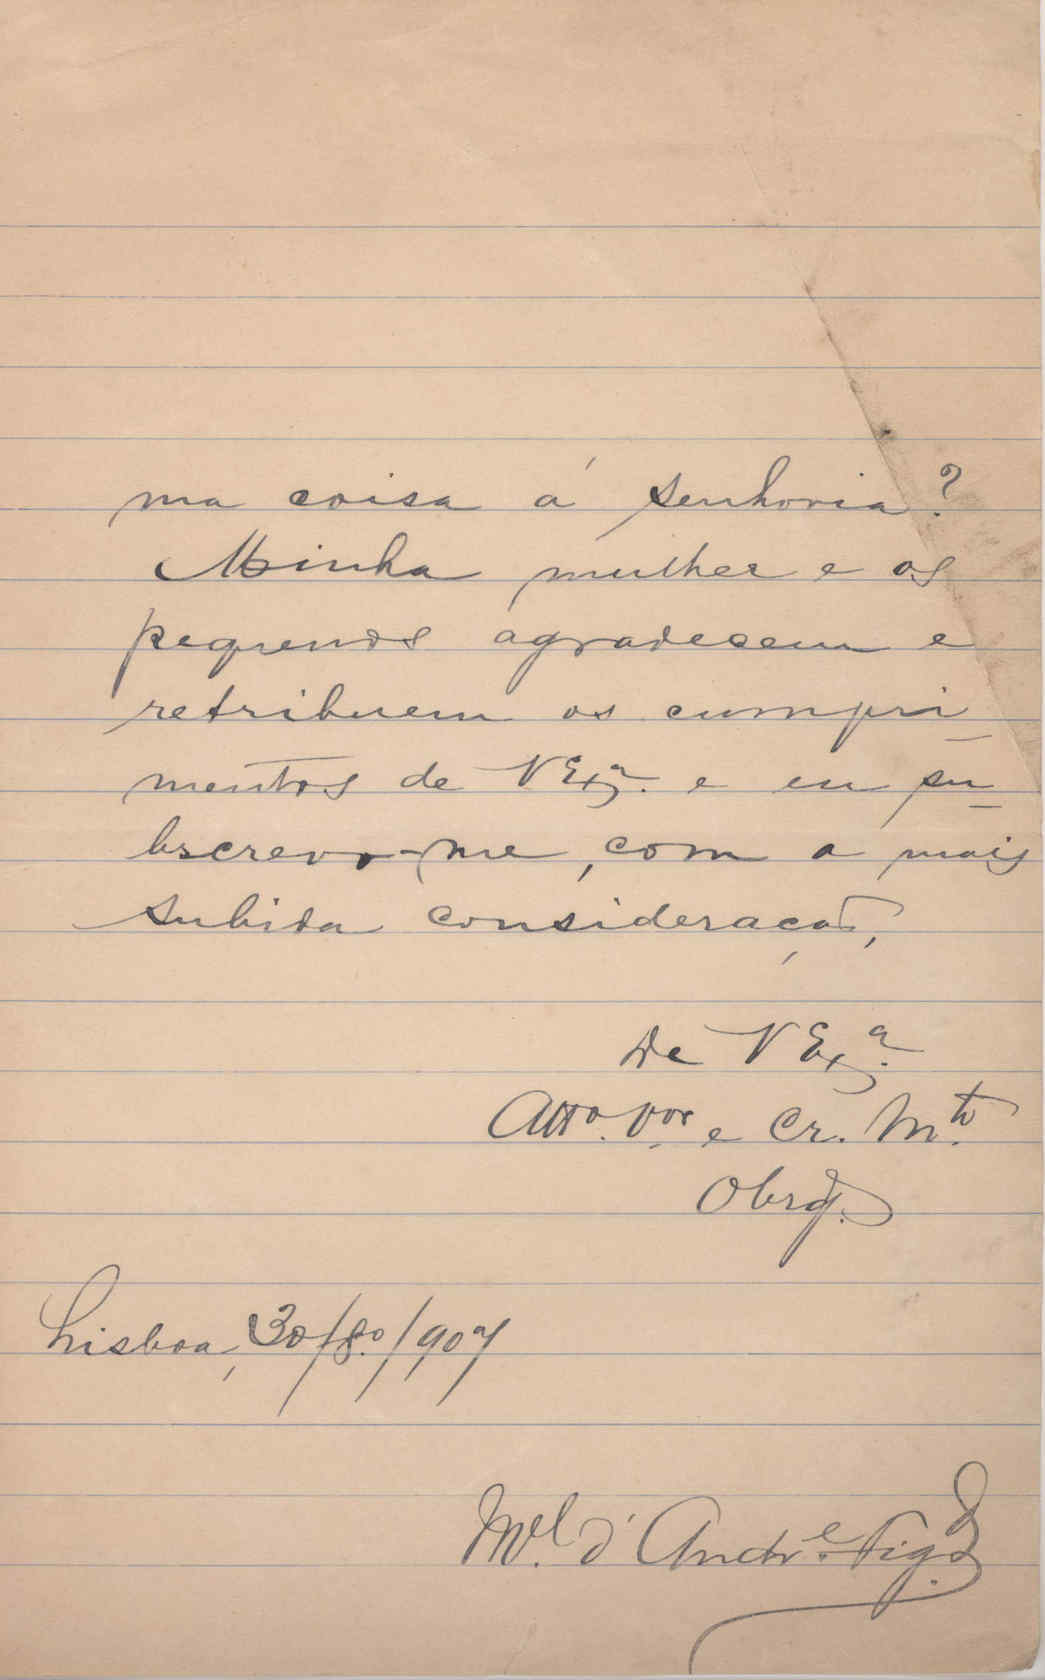 ma coisa á senhoria?
Minha mulher e os
pequenos agradecem e
retribuem os cumpri-
mentos de V Exª. e eu su-
bscrevo-me, com a mais
subida consideração,
De V Exª.
Atto. Vor e Cr. Mto.
Obrgº.
Lisboa, 30/8º/907
Mel. d'Andre. Figdo.